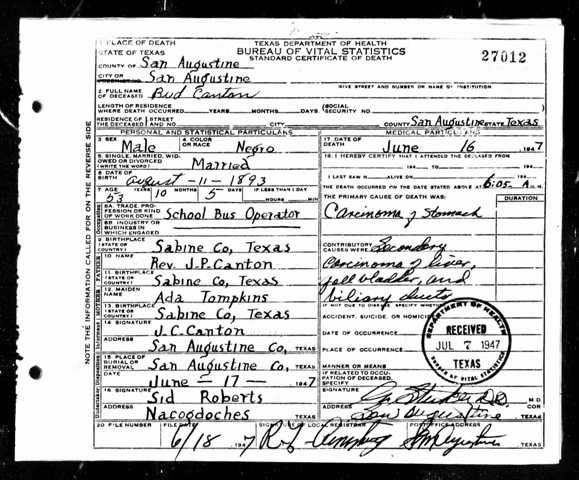 1 PLACE OF DEATH
STATE OF TEXAS
TEXAS DEPARTMENT OF HEALTH
BUREAU OF VITAL STATISTICS
STANDARD CERTIFICATE OF DEATH
27012
COUNTY OF San Augustine
CITY OR
San Augustine
GIVE STREET AND NUMBER OR NAME OF INSTITUTION
2. FULL NAME OF DECEASED Bud Canton
LENGTH OF RESIDENCE WHERE DEATH OCCURRED YEARS MONTHS DAYS (SOCIAL SECURITY NO.
RESIDENCE OF THE DECEASED STREET AND NO. CITY COUNTY San Augustine STATE Texas
PERSONAL AND STATISTICAL PARTICULARS
3 SEX Male
4 COLOR OR RACE Negro
5. SINGLE, MARRIED, WIDOWED OR DIVORCED (WRITE THE WORD) Married
6 DATE OF BIRTH August - 11 - 1893
7 AGE YEARS MONTHS DAYS IF LESS THAN 1 DAY
53 10 5 HOURS MIN
8A. TRADE, PROFESSION OR KIND OF WORK DONE School Bus Operator
8B. INDUSTRY OR BUSINESS IN WHICH ENGAGED
9 BIRTHPLACE (STATE OR COUNTRY) Sabine Co, Texas
10 NAME Rev. J.P. Canton
11 BIRTHPLACE (STATE OR COUNTRY) Sabine Co, Texas
12 MAIDEN NAME Ada Tompkins
13 BIRTHPLACE (STATE OR COUNTRY) Sabine Co, Texas
14 SIGNATURE J.C. Canton
ADDRESS San Augustine Co, TEXAS
15 PLACE OF BURIAL OR REMOVAL San Augustine Co, TEXAS
DATE June - 17 - 1947
16 SIGNATURE Sid Roberts
ADDRESS Nacogdoches TEXAS
MEDICAL PARTICULARS
17 DATE OF DEATH June 16 1947
18. I HEREBY CERTIFY THAT I ATTENDED THE DECEASED FROM
I LAST SAW H ALIVE ON
THE DEATH OCCURRED ON THE DATE STATED ABOVE AT 6:05 A. M.
THE PRIMARY CAUSE OF DEATH WAS: DURATION
Carcinoma of Stomach
CONTRIBUTORY CAUSES WERE: Secondary
carcinoma of liver,
gall bladder, and
biliary ducts
IF NOT DUE TO DISEASE, SPECIFY WHETHER
ACCIDENT, SUICIDE, OR HOMICIDE
DATE OF OCCURRENCE
PLACE OF OCCURRENCE
MANNER OR MEANS
IF RELATED TO OCCUPATION OF DECEASED, SPECIFY
SIGNATURE M D
ADDRESS San Augustine TEXAS
DEPARTMENT OF HEALTH
RECEIVED
JUL 7 1947
TEXAS
BUREAU OF VITAL STATISTICS
20 FILE NUMBER FILE DATE SIGNATURE OF LOCAL REGISTRAR POST OFFICE ADDRESS
6/18 1947 San Augustine TEXAS
NOTE THE INFORMATION CALLED FOR ON THE REVERSE SIDE